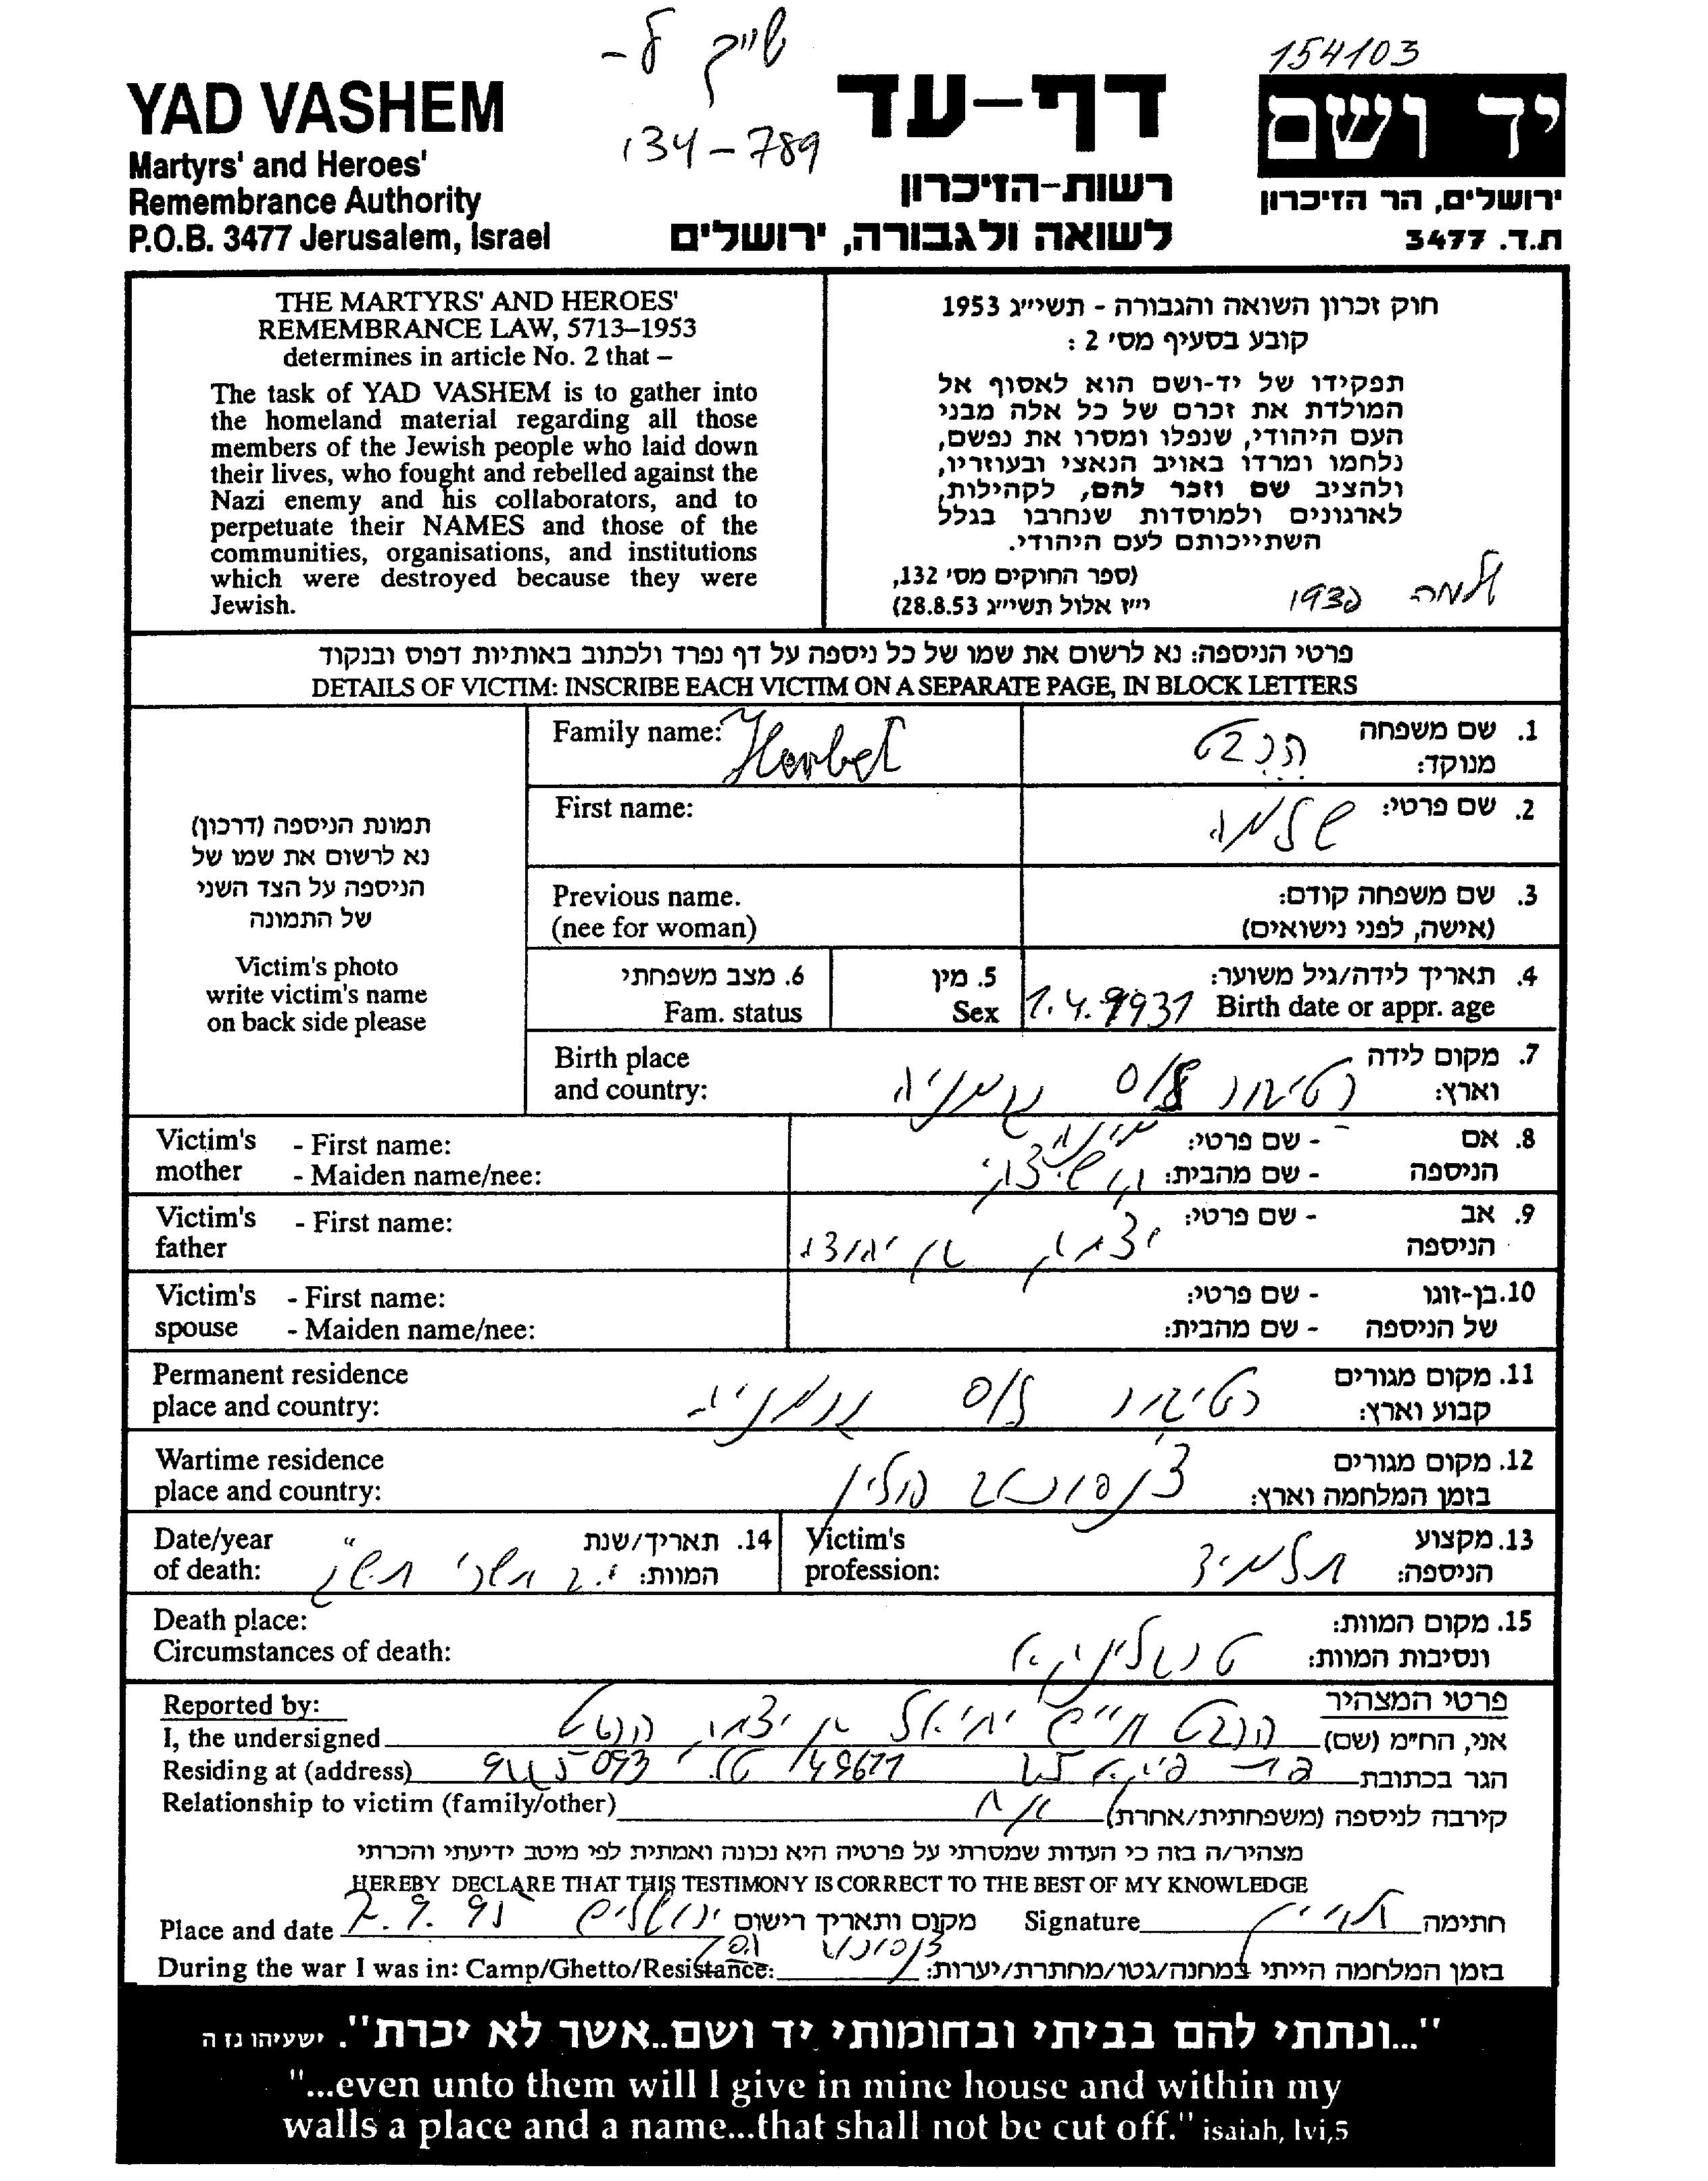 שייך ל-
134-789
154103
YAD VASHEM
Martyrs' and Heroes'
Remembrance Authority
P.O.B. 3477 Jerusalem, Israel
דף-עד
רשות-הזיכרון
לשואה ולגבורה, ירושלים
יד ושם
ירושלים, הר הזיכרון
ת.ד. 3477
THE MARTYRS' AND HEROES'
REMEMBRANCE LAW, 5713–1953
determines in article No. 2 that –
The task of YAD VASHEM is to gather into
the homeland material regarding all those
members of the Jewish people who laid down
their lives, who fought and rebelled against the
Nazi enemy and his collaborators, and to
perpetuate their NAMES and those of the
communities, organisations, and institutions
which were destroyed because they were
Jewish.
חוק זכרון השואה והגבורה - תשי״ג 1953
קובע בסעיף מס' 2 :
תפקידו של יד-ושם הוא לאסוף אל
המולדת את זכרם של כל אלה מבני
העם היהודי, שנפלו ומסרו את נפשם,
נלחמו ומרדו באויב הנאצי ובעוזריו,
ולהציב שם וזכר להם, לקהילות,
לארגונים ולמוסדות שנחרבו בגלל
השתייכותם לעם היהודי.
(ספר החוקים מס' 132,
י״ז אלול תשי״ג 28.8.53)
פרטי הניספה: נא לרשום את שמו של כל ניספה על דף נפרד ולכתוב באותיות דפוס ובנקוד
DETAILS OF VICTIM: INSCRIBE EACH VICTIM ON A SEPARATE PAGE, IN BLOCK LETTERS
תמונת הניספה (דרכון)
נא לרשום את שמו של
הניספה על הצד השני
של התמונה
Victim's photo
write victim's name
on back side please
Family name:
1. שם משפחה
מנוקד: הרבט
First name:
2. שם פרטי: שלמה
Previous name.
(nee for woman)
3. שם משפחה קודם:
(אישה, לפני נישואים)
6. מצב משפחתי
Fam. status
5. מין
Sex
4. תאריך לידה/גיל משוער:
Birth date or appr. age 1.4.1931
Birth place
and country:
7. מקום לידה
וארץ: גרמניה
Victim's mother
- First name:
- Maiden name/nee:
8. אם הניספה
- שם פרטי:
- שם מהבית:
Victim's father
- First name:
9. אב הניספה
- שם פרטי: יצחק בן יהודה
Victim's spouse
- First name:
- Maiden name/nee:
10. בן-זוגו של הניספה
- שם פרטי:
- שם מהבית:
Permanent residence
place and country:
11. מקום מגורים
קבוע וארץ: גרמניה
Wartime residence
place and country:
12. מקום מגורים
בזמן המלחמה וארץ: פולין
Date/year
of death:
14. תאריך/שנת
המוות: תשרי תש"ג
Victim's
profession:
13. מקצוע
הניספה: תלמיד
Death place:
Circumstances of death:
15. מקום המוות:
ונסיבות המוות: טרבלינקא
Reported by:
פרטי המצהיר
I, the undersigned
אני, החי״מ (שם) הרבט חיים יחיאל בן יצחק הרבט
Residing at (address)
הגר בכתובת 49611
Relationship to victim (family/other)
קירבה לניספה (משפחתית/אחרת) אח
מצהיר/ה בזה כי העדות שמסרתי על פרטיה היא נכונה ואמתית לפי מיטב ידיעתי והכרתי
HEREBY DECLARE THAT THIS TESTIMONY IS CORRECT TO THE BEST OF MY KNOWLEDGE
Place and date 7.9.95 ירושלים מקום ותאריך רישום
Signature חתימה
During the war I was in: Camp/Ghetto/Resistance:
בזמן המלחמה הייתי במחנה/גטו/מחתרת/יערות:
"...ונתתי להם בביתי ובחומותי יד ושם..אשר לא יכרת". ישעיהו נו ה
"...even unto them will I give in mine house and within my
walls a place and a name...that shall not be cut off." isaiah, lvi,5